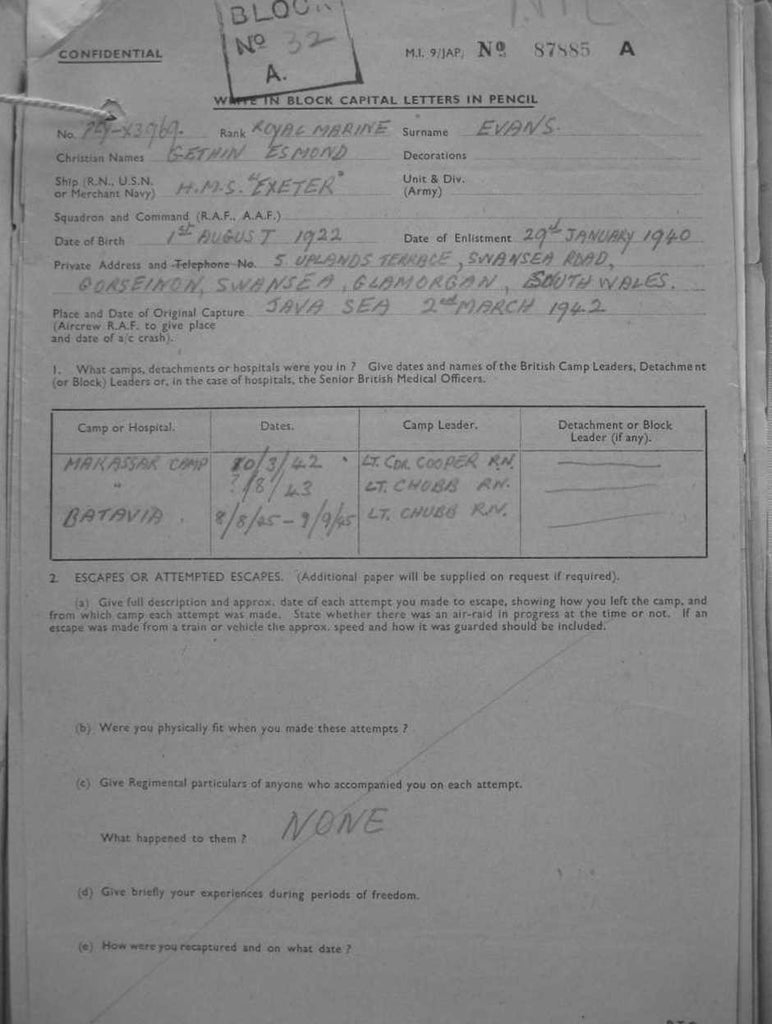 BLOCK
No 32
A.
CONFIDENTIAL
M.I. 9/JAP/ No 87885 A
WRITE IN BLOCK CAPITAL LETTERS IN PENCIL
No. Rank ROYAL MARINE Surname EVANS.
Christian Names GETHIN ESMOND Decorations
Ship (R.N., U.S.N. or Merchant Navy) H.M.S. "EXETER" Unit & Div. (Army)
Squadron and Command (R.A.F., A.A.F.)
Date of Birth 1st AUGUST 1922 Date of Enlistment 29th JANUARY 1940
Private Address and Telephone No. 5 UPLANDS TERRACE, SWANSEA ROAD,
GORSEINON, SWANSEA, GLAMORGAN, SOUTH WALES.
Place and Date of Original Capture JAVA SEA 2nd MARCH 1942
(Aircrew R.A.F. to give place
and date of a/c crash).
1. What camps, detachments or hospitals were you in ? Give dates and names of the British Camp Leaders, Detachment
(or Block) Leaders or, in the case of hospitals, the Senior British Medical Officers.
Camp or Hospital. Dates. Camp Leader. Detachment or Block Leader (if any).
MAKASSAR CAMP 10/3/42 LT. CDR. COOPER R.N.
" ?/8/43 LT. CHUBB R.N.
BATAVIA. 8/8/45 - 9/9/45 LT. CHUBB R.N.
2. ESCAPES OR ATTEMPTED ESCAPES. (Additional paper will be supplied on request if required).
(a) Give full description and approx. date of each attempt you made to escape, showing how you left the camp, and
from which camp each attempt was made. State whether there was an air-raid in progress at the time or not. If an
escape was made from a train or vehicle the approx. speed and how it was guarded should be included.
(b) Were you physically fit when you made these attempts ?
(c) Give Regimental particulars of anyone who accompanied you on each attempt.
NONE
What happened to them ?
(d) Give briefly your experiences during periods of freedom.
(e) How were you recaptured and on what date ?